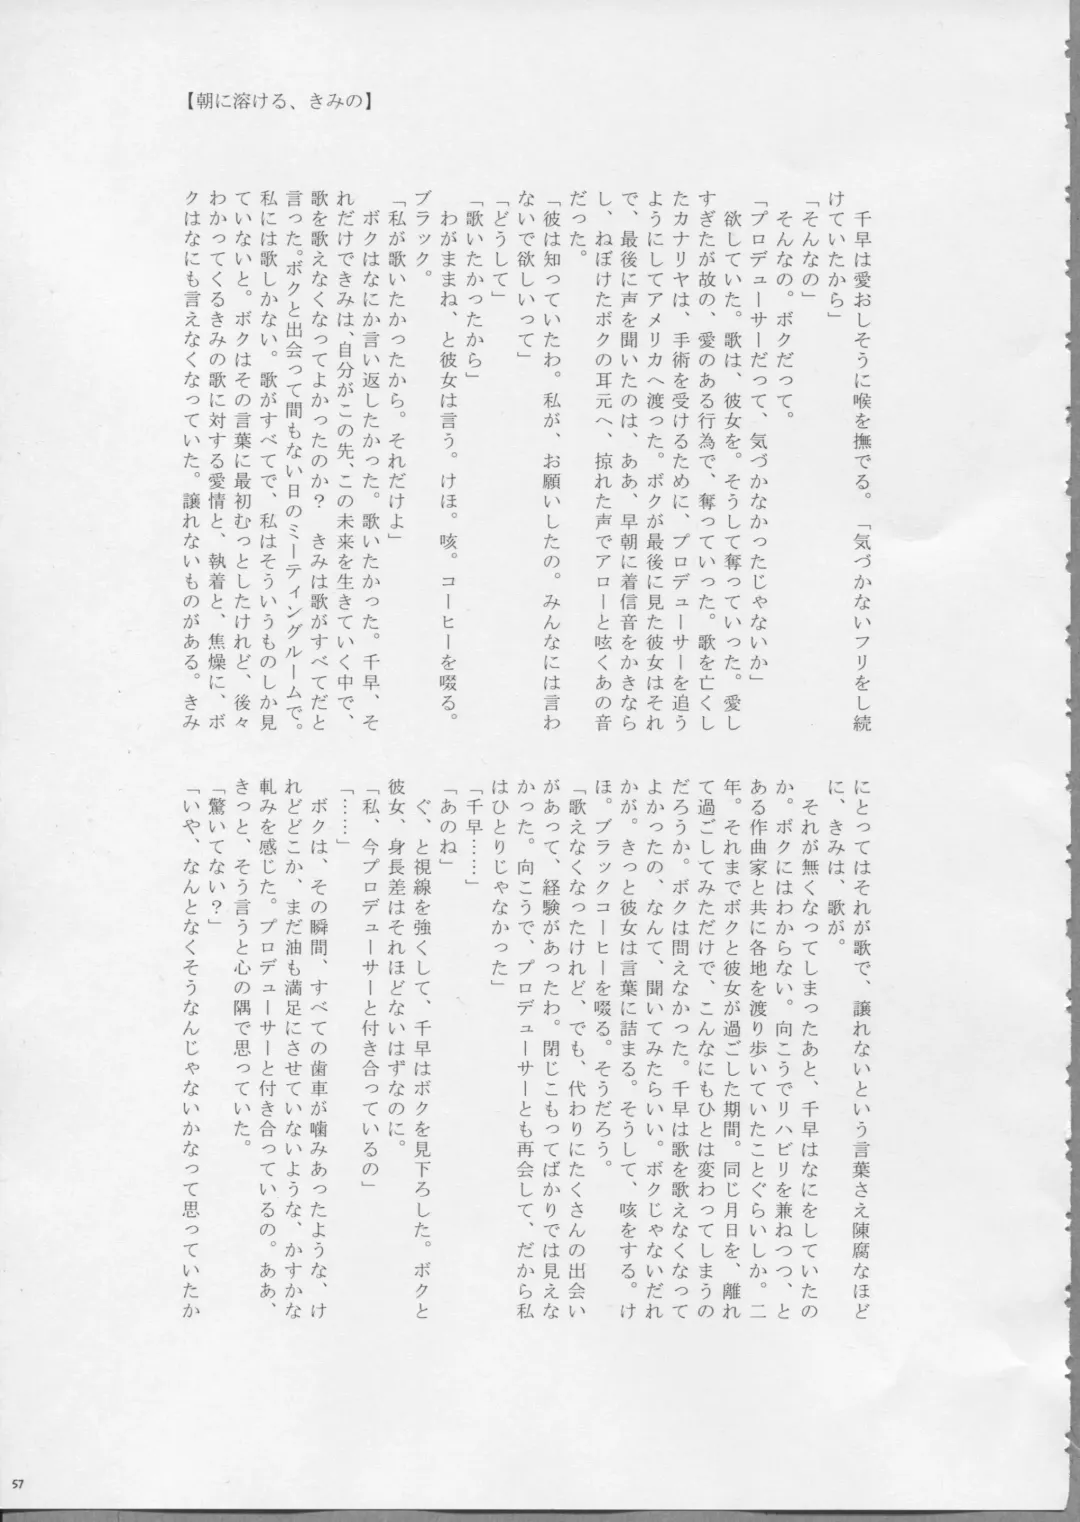 【朝に溶ける、きみの】
　千早は愛おしそうに喉を撫でる。　「気づかないフリをし続
けていたから」
「そんなの」
　そんなの。ボクだって。
「プロデューサーだって、気づかなかったじゃないか」
　欲していた。歌は、彼女を。そうして奪っていった。愛し
すぎたが故の、愛のある行為で、奪っていった。歌を亡くし
たカナリヤは、手術を受けるために、プロデューサーを追う
ようにしてアメリカへ渡った。ボクが最後に見た彼女はそれ
で、最後に声を聞いたのは、ああ、早朝に着信音をかきなら
し、ねぼけたボクの耳元へ、掠れた声でアローと呟くあの音
だった。
「彼は知っていたわ。私が、お願いしたの。みんなには言わ
ないで欲しいって」
「どうして」
「歌いたかったから」
　わがままね、と彼女は言う。けほ。咳。コーヒーを啜る。
ブラック。
「私が歌いたかったから。それだけよ」
　ボクはなにか言い返したかった。歌いたかった。千早、そ
れだけできみは、自分がこの先、この未来を生きていく中で、
歌を歌えなくなってよかったのか？　きみは歌がすべてだと
言った。ボクと出会って間もない日のミーティングルームで。
私には歌しかない。歌がすべてで、私はそういうものしか見
ていないと。ボクはその言葉に最初むっとしたけれど、後々
わかってくるきみの歌に対する愛情と、執着と、焦燥に、ボ
クはなにも言えなくなっていた。譲れないものがある。きみ
にとってはそれが歌で、譲れないという言葉さえ陳腐なほど
に、きみは、歌が。
　それが無くなってしまったあと、千早はなにをしていたの
か。ボクにはわからない。向こうでリハビリを兼ねつつ、と
ある作曲家と共に各地を渡り歩いていたことぐらいしか。二
年。それまでボクと彼女が過ごした期間。同じ月日を、離れ
て過ごしてみただけで、こんなにもひとは変わってしまうの
だろうか。ボクは問えなかった。千早は歌を歌えなくなって
よかったの、なんて、聞いてみたらいい。ボクじゃないだれ
かが。きっと彼女は言葉に詰まる。そうして、咳をする。け
ほ。ブラックコーヒーを啜る。そうだろう。
「歌えなくなったけれど、でも、代わりにたくさんの出会い
があって、経験があったわ。閉じこもってばかりでは見えな
かった。向こうで、プロデューサーとも再会して、だから私
はひとりじゃなかった」
「千早……」
「あのね」
　ぐ、と視線を強くして、千早はボクを見下ろした。ボクと
彼女、身長差はそれほどないはずなのに。
「私、今プロデューサーと付き合っているの」
「……」
　ボクは、その瞬間、すべての歯車が噛みあったような、け
れどどこか、まだ油も満足にさせていないような、かすかな
軋みを感じた。プロデューサーと付き合っているの。ああ、
きっと、そう言うと心の隅で思っていた。
「驚いてない？」
「いや、なんとなくそうなんじゃないかなって思っていたか
57